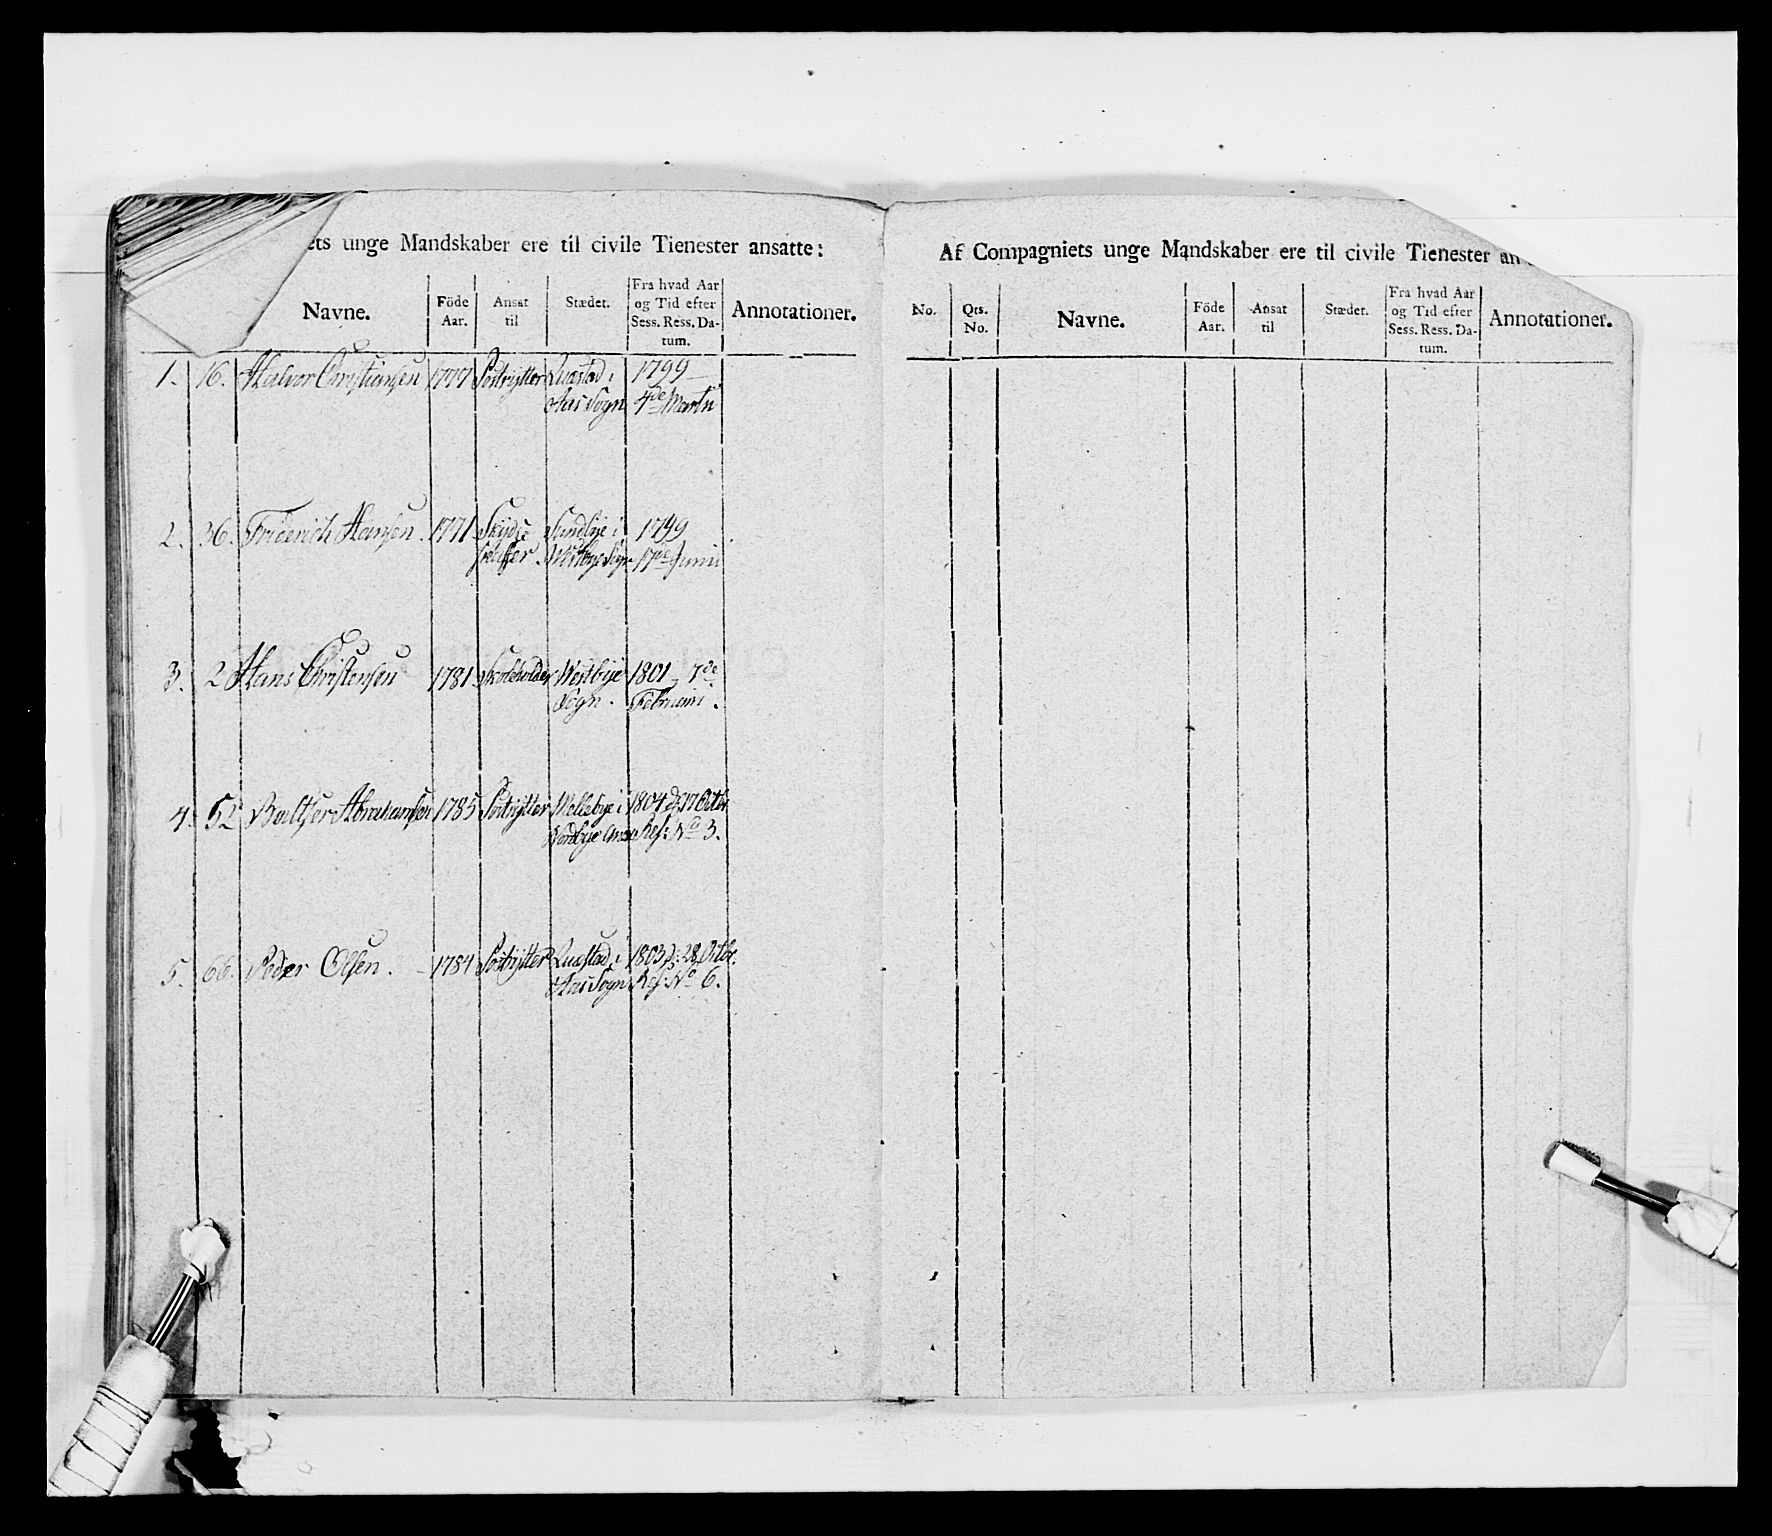 ets unge Mandskaber ere til civile Tienester ansatte:
Navne. Föde Aar. Ansat til Stædet. Fra hvad Aar og Tid efter Sess. Ress. Datum. Annotationer.
1. 16. Halvor Christiansen 1777 Postrytter Questad i 1799
Aas Sogn 4de Martii
2. 36. Friderich Hansen. 1771 Skyds- Sundbye i 1799
skaffer. Westbye Sogn 17de Junii
3. 2 Hans Christensen 1781 Skoleholder Westbye 1801 7de
Sogn. Februarii.
4. 52 Baltser Abrahamsen 1785 Postrytter Mellebye i 1804 d. 17 Octbr
Nordbye Anex Res: No 3.
5. 66. Peder Olsen. 1784 Postrytter Questad i 1803 d: 28 Octbr.
Aas Sogn Res: No 6.
Af Compagniets unge Mandskaber ere til civile Tienester an
No. Qts. No. Navne. Föde Aar. Ansat til Stædet. Fra hvad Aar og Tid efter Sess. Ress. Datum. Annotationer.